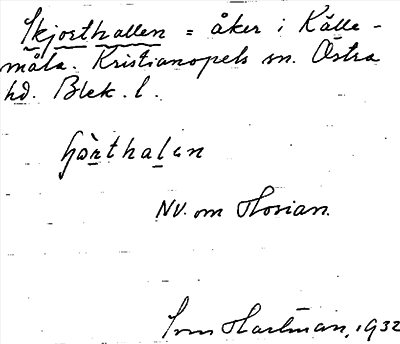 Skjorthallen = åker i Källe-
måla. Kristianopels sn. Östra
hd. Blek. l.
NV. om Hosian.
Hartman, 1932